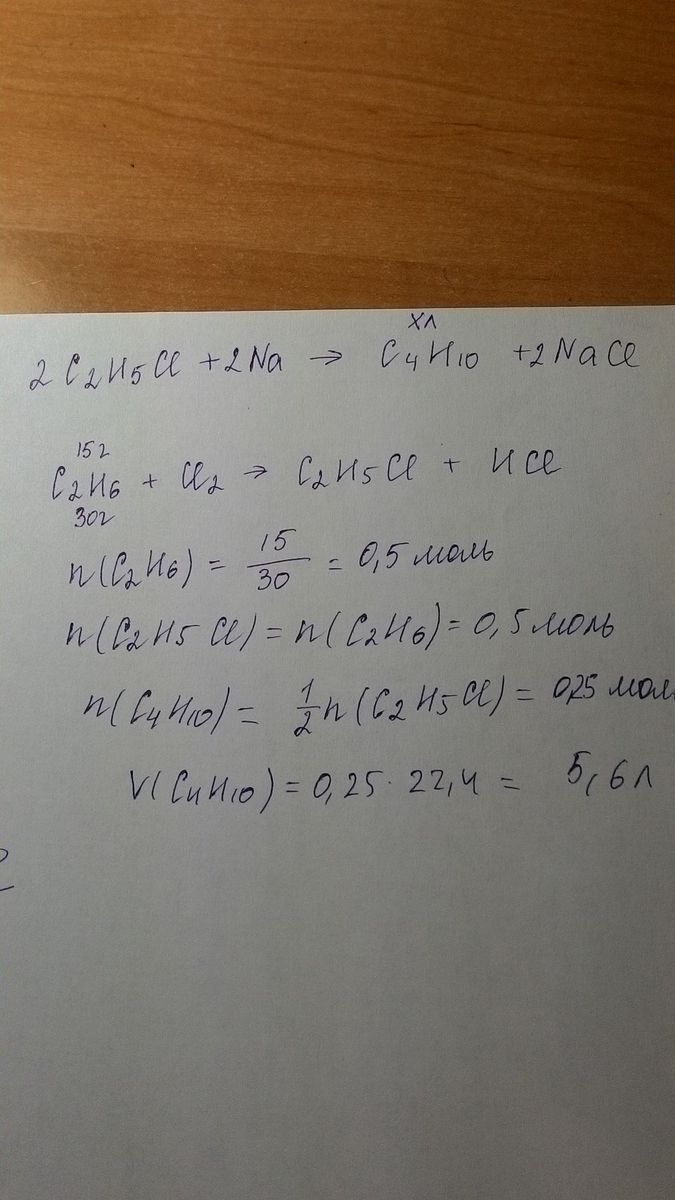 хл
2 C₂H₅Cl + 2Na → C₄H₁₀ + 2NaCl
15г
C₂H₆ + Cl₂ → C₂H₅Cl + HCl
30г
n(C₂H₆) = 15/30 = 0,5 моль
n(C₂H₅Cl) = n(C₂H₆) = 0,5 моль
n(C₄H₁₀) = 1/2 n(C₂H₅Cl) = 0,25 мол
V(C₄H₁₀) = 0,25 · 22,4 = 5,6л